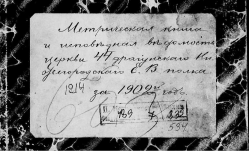 Метрическая книга
и исповѣдная вѣдомость
церкви 44 драгунскаго Ни
жегородскаго Е. В. полка
1214 за 1902 годъ
439 7 832
594